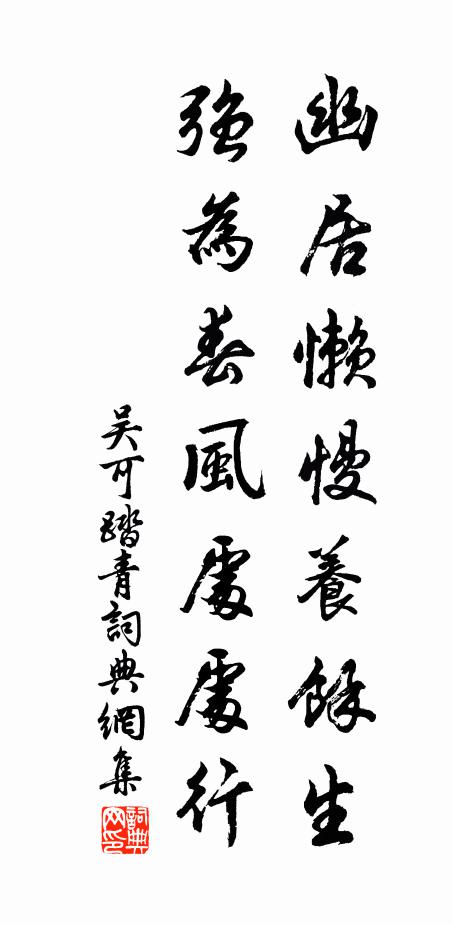 幽居懶慢養餘生
強為春風處處行
吴可踏青詞典網集
詞典网印